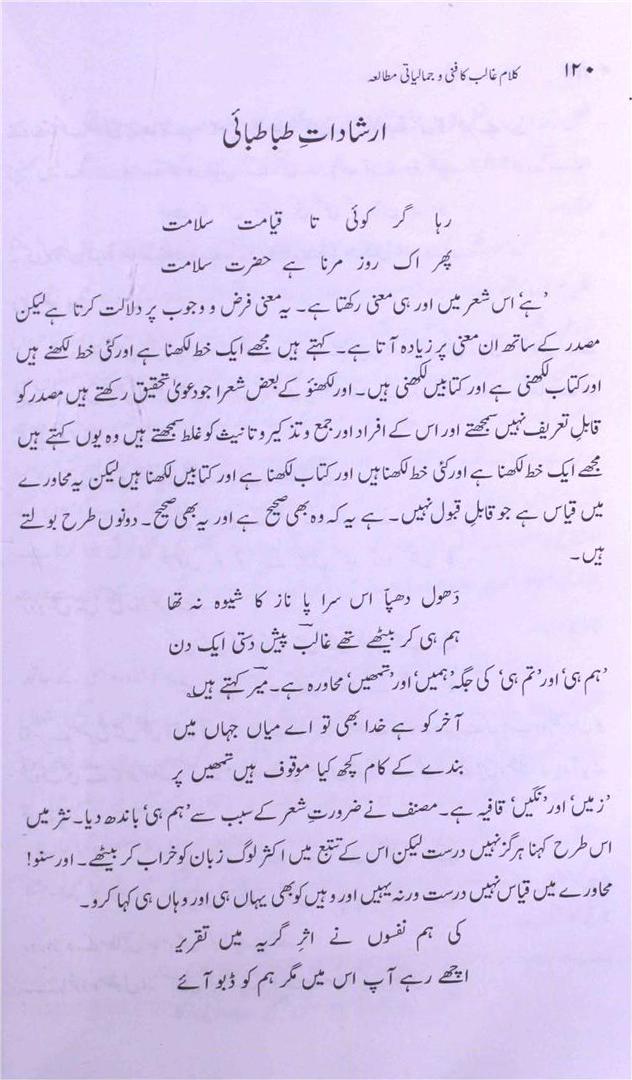 ۱۲۰ کلام غالب کا فنی و جمالیاتی مطالعہ
ارشاداتِ طباطبائی
رہا گر کوئی تا قیامت سلامت
پھر اک روز مرنا ہے حضرت سلامت
'ہے' اس شعر میں اور ہی معنی رکھتا ہے۔ یہ معنی فرض و وجوب پر دلالت کرتا ہے لیکن
مصدر کے ساتھ ان معنی پر زیادہ آتا ہے۔ کہتے ہیں مجھے ایک خط لکھنا ہے اور کئی خط لکھنے ہیں
اور کتاب لکھنی ہے اور کتابیں لکھنی ہیں۔ اور لکھنؤ کے بعض شعرا جو دعویٰ تحقیق رکھتے ہیں مصدر کو
قابلِ تعریف نہیں سمجھتے اور اس کے افراد اور جمع و تذکیر و تانیث کو غلط سمجھتے ہیں وہ یوں کہتے ہیں
مجھے ایک خط لکھنا ہے اور کئی خط لکھنا ہیں اور کتاب لکھنا ہے اور کتابیں لکھنا ہیں لیکن یہ محاورے
میں قیاس ہے جو قابلِ قبول نہیں۔ ہے یہ کہ وہ بھی صحیح ہے اور یہ بھی صحیح۔ دونوں طرح بولتے
ہیں۔
دَھول دھپّا اس سراپا ناز کا شیوہ نہ تھا
ہم ہی کر بیٹھے تھے غالبؔ پیش دستی ایک دن
'ہم ہی' اور 'تم ہی' کی جگہ 'ہمیں' اور 'تمھیں' محاورہ ہے۔ میرؔ کہتے ہیں
آخر کو ہے خدا بھی تو اے میاں جہاں میں
بندے کے کام کچھ کیا موقوف ہیں تمھیں پر
'زمیں' اور 'نگیں' قافیہ ہے۔ مصنف نے ضرورتِ شعر کے سبب سے 'ہم ہی' باندھ دیا۔ نثر میں
اس طرح کہنا ہرگز نہیں درست لیکن اس کے تتبع میں اکثر لوگ زبان کو خراب کر بیٹھے۔ اور سنو!
محاورے میں قیاس نہیں درست ورنہ یہیں اور وہیں کو بھی یہاں ہی اور وہاں ہی کہا کرو۔
کی ہم نفسوں نے اثرِ گریہ میں تقریر
اچھے رہے آپ اس میں مگر ہم کو ڈبو آئے